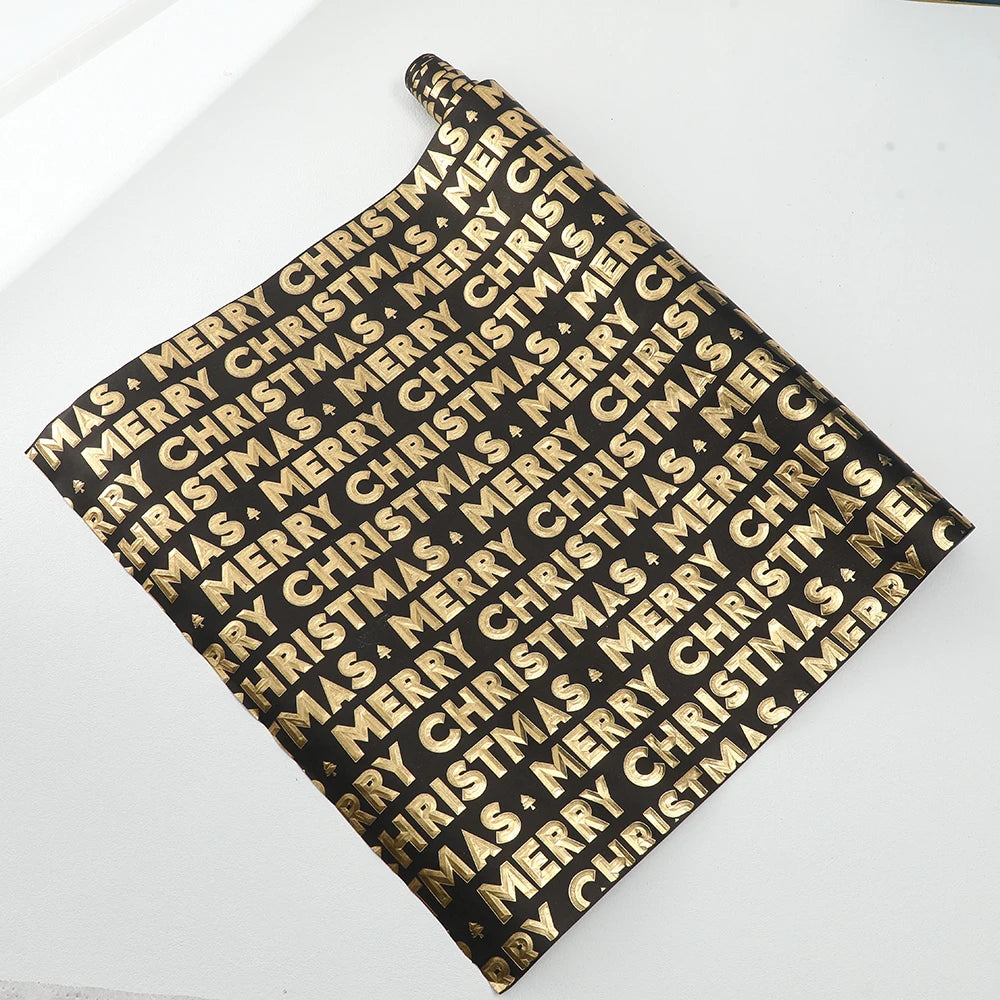 MERRY CHRISTMAS MERRY
MAS MERRY CHRISTMAS MERRY CH
MERRY CHRISTMAS MERRY CHRIST
RRY CHRISTMAS MERRY CHRISTMAS
CHRISTMAS MERRY CHRISTMAS MERR
MAS MERRY CHRISTMAS MERRY CHRIST
MERRY CHRISTMAS MERRY CHRISTMAS
RRY CHRISTMAS MERRY CHRISTMAS MER
HRISTMAS MERRY CHRISTMAS MERRY CH
MAS MERRY CHRISTMAS MERRY CHRIST
MERRY CHRISTMAS MERRY CHRISTMAS
RRY CHRISTMAS MERRY CHRISTMAS MERR
HRISTMAS MERRY CHRISTMAS MERRY
TMAS MERRY CHRISTMAS MERRY
MERRY CHRISTMAS
RRY CHRISTMAS